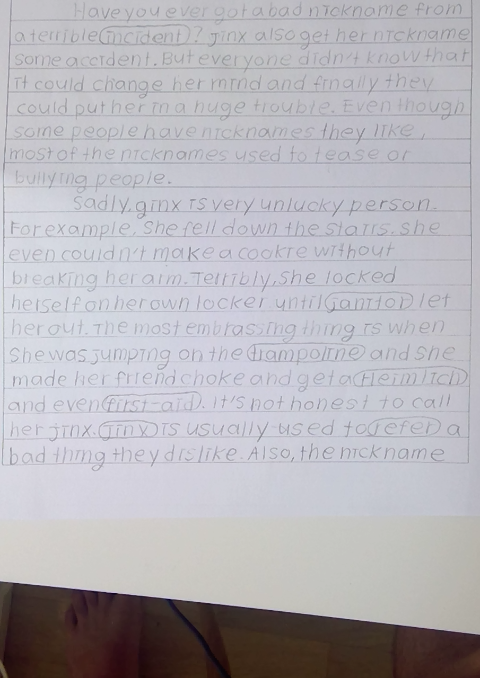 Have you ever got a bad nickname from
a terrible incident? Jinx also get her nickname
some accident. But everyone didn't know that
it could change her mind and finally they
could put her in a huge trouble. Even though
some people have nicknames they like,
most of the nicknames used to tease or
bullying people.
Sadly, ginx is very unlucky person.
For example, She fell down the stairs. She
even couldn't make a cookie without
breaking her arm. Terribly, She locked
herself on her own locker until janitor let
her out. The most embrassing thing is when
She was jumping on the trampoline and she
made her friend choke and get a Heimlich
and even first-aid. It's not honest to call
her jinx. Jinx is usually used to refer a
bad thing they dislike. Also, the nickname